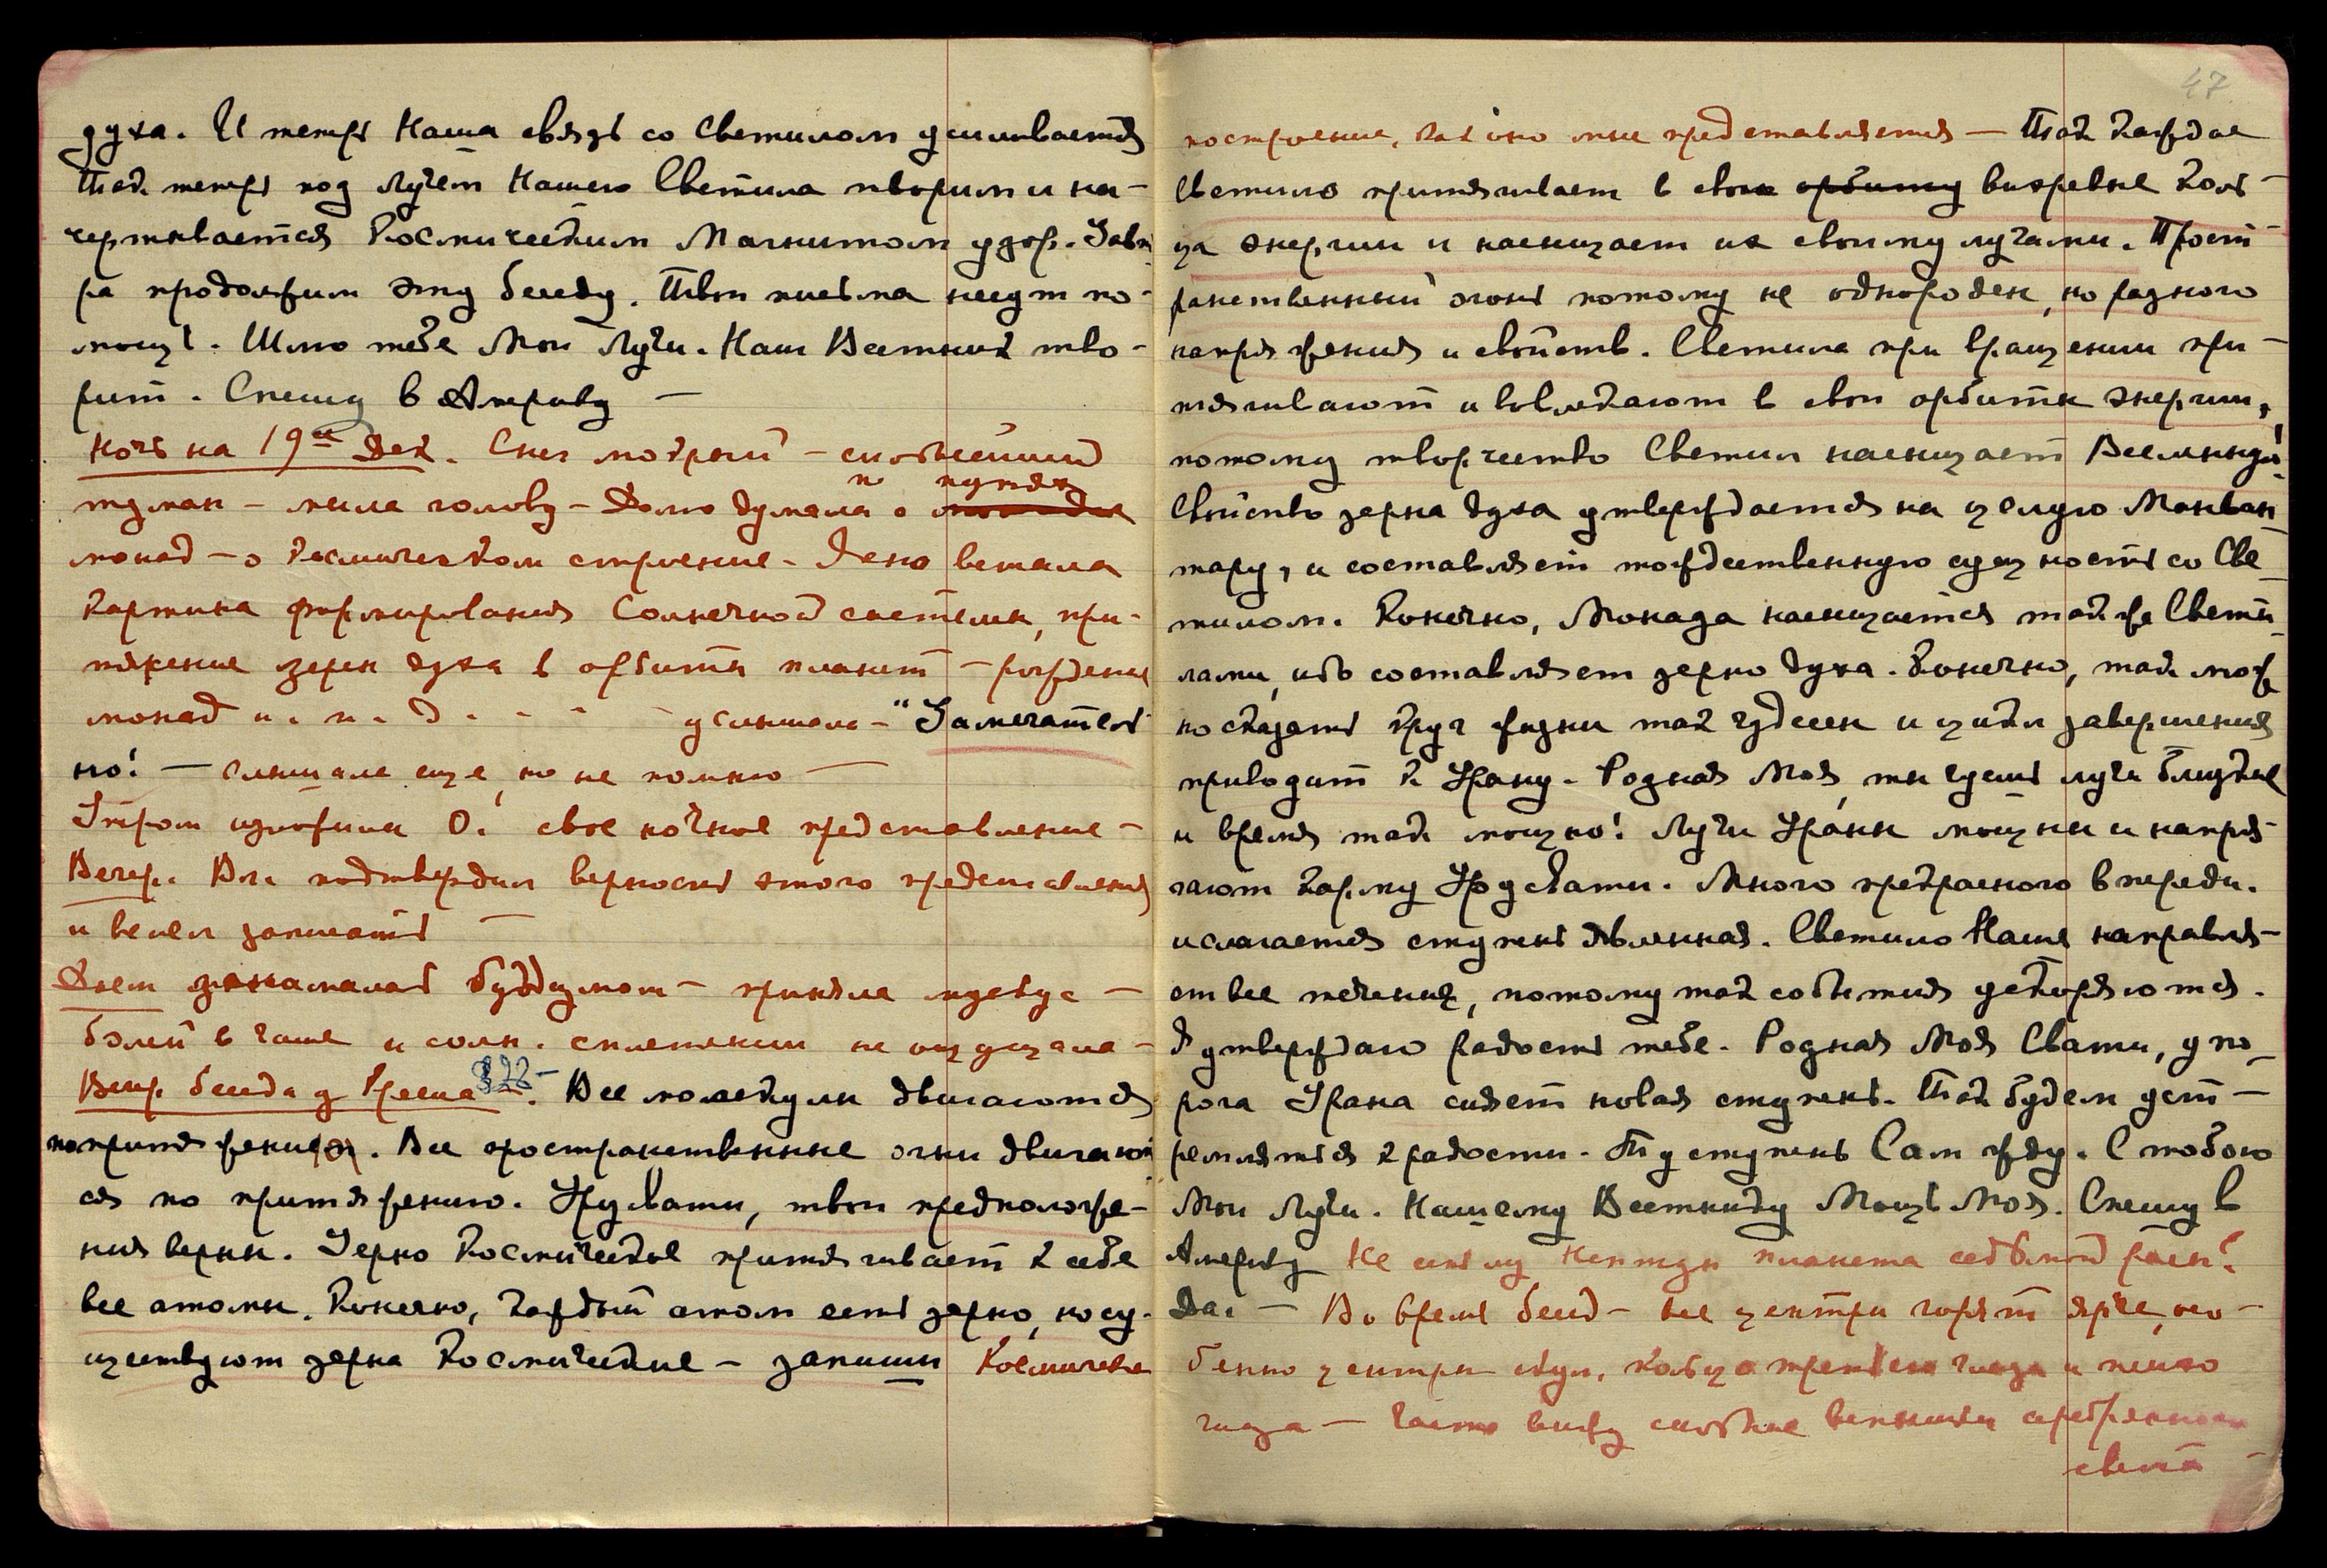 духа. И теперь Наша связь со Светилом усиливается
Так теперь под Лучем Нашего Светила творим и на-
чертывается Космическим Магнитом узор. Завт
ра продолжим эту беседу. Твои письма несут по-
мощь. Шлю тебе Мои Лучи. Наш Вестник тво-
рит. Спешу в Америку —
Ночь на 19ое Дек. Снег мокрый -
туман - мыла голову - Долго думала о путях
монад - о космическом строение - Ясно встала
картина формирования Солнечной системы, при-
тяжение зерен духа в орбиты планет - рождение
монад и. т. д. - - - услышала - "Замечатель
но! — слышала еще, но не помню —
Утром изложила О. свое ночное представление -
Вечер. Вл. подтвердил верность этого представления
и велел записать —
Днем занималась Буддизмом - приняла мускус -
болей в чаше и солн. сплетении не ощущала -
Веч. беседа у Кресла §22 -. Все молекулы двигаются
по притяжению. Все пространственные огни двигают
ся по притяжению. Урусвати, твои предположе-
ния верны. Зерно Космическое притягивает к себе
все атомы. Конечно, каждый атом есть зерно, но су-
ществуют зерна Космические - запиши Космическое
47
построение, как оно мне представляется — Так каждое
Светило притягивает в свою орбиту вихревые коль-
ца энергии и насыщает их своими лучами. Прост
ранственный огонь потому не однороден, но разного
напряжения и свойств. Светила при вращении при-
тягивают и вовлекают в свои орбиты энергии,
потому творчество Светил насыщает Вселенную.
Свойство зерна духа утверждается на целую Манван
тару, и составляет тождественную сущность со Све-
тилом. Конечно, Монада насыщается также Свети-
лами, ибо составляет зерно духа. Конечно, так мож
но сказать круг жизни так чудесен и цикл завершения
приводит к Урану. Родная Моя, ты чуешь лучи близкие
и время так мощно! Лучи Урана мощны и напря-
гают карму Урусвати. Много прекрасного впереди.
и слагается ступень явленная. Светило Наше направля-
ет все течения, потому так события ускоряются.
Я утверждаю радость тебе. Родная Моя Свати, у по-
рога Урана сияет новая ступень. Так будем уст-
ремляться к радости. Ту ступень Сам жду. С тобою
Мои Лучи. Нашему Вестнику Мощь Моя. Спешу в
Америку Не есть ли Нептун планета седьмой расы?
Да. — Во время бесед - все центры горят ярче, осо-
бенно центры скул, кольца третьего глаза и
глаза — часто вижу вспышки серебряного
света